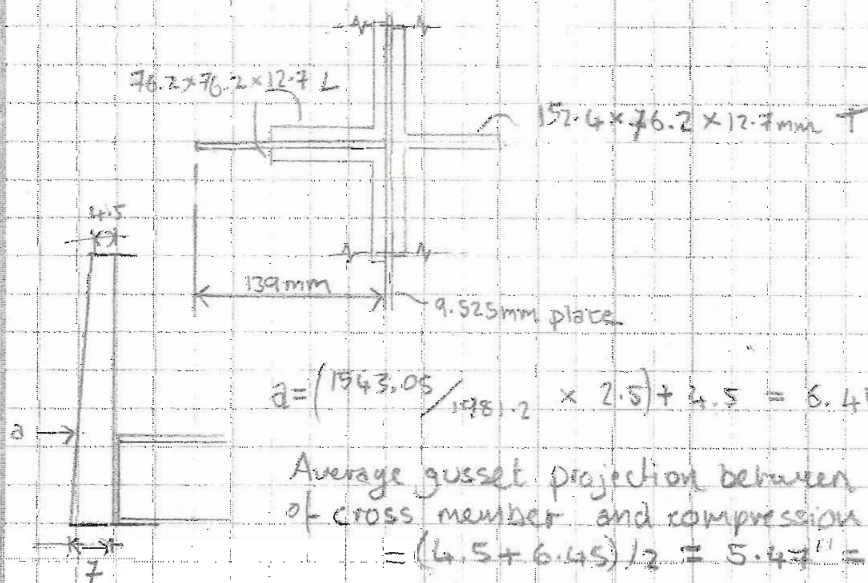 76.2×76.2×12.7 L
152.4×76.2×12.7mm T
4.5
139mm
9.525mm plate
a=(1543.05/1981.2 × 2.5)+4.5 = 6.4
a
Average gusset projection between
of cross member and compression
=(4.5+6.45)/2 = 5.47" =
7